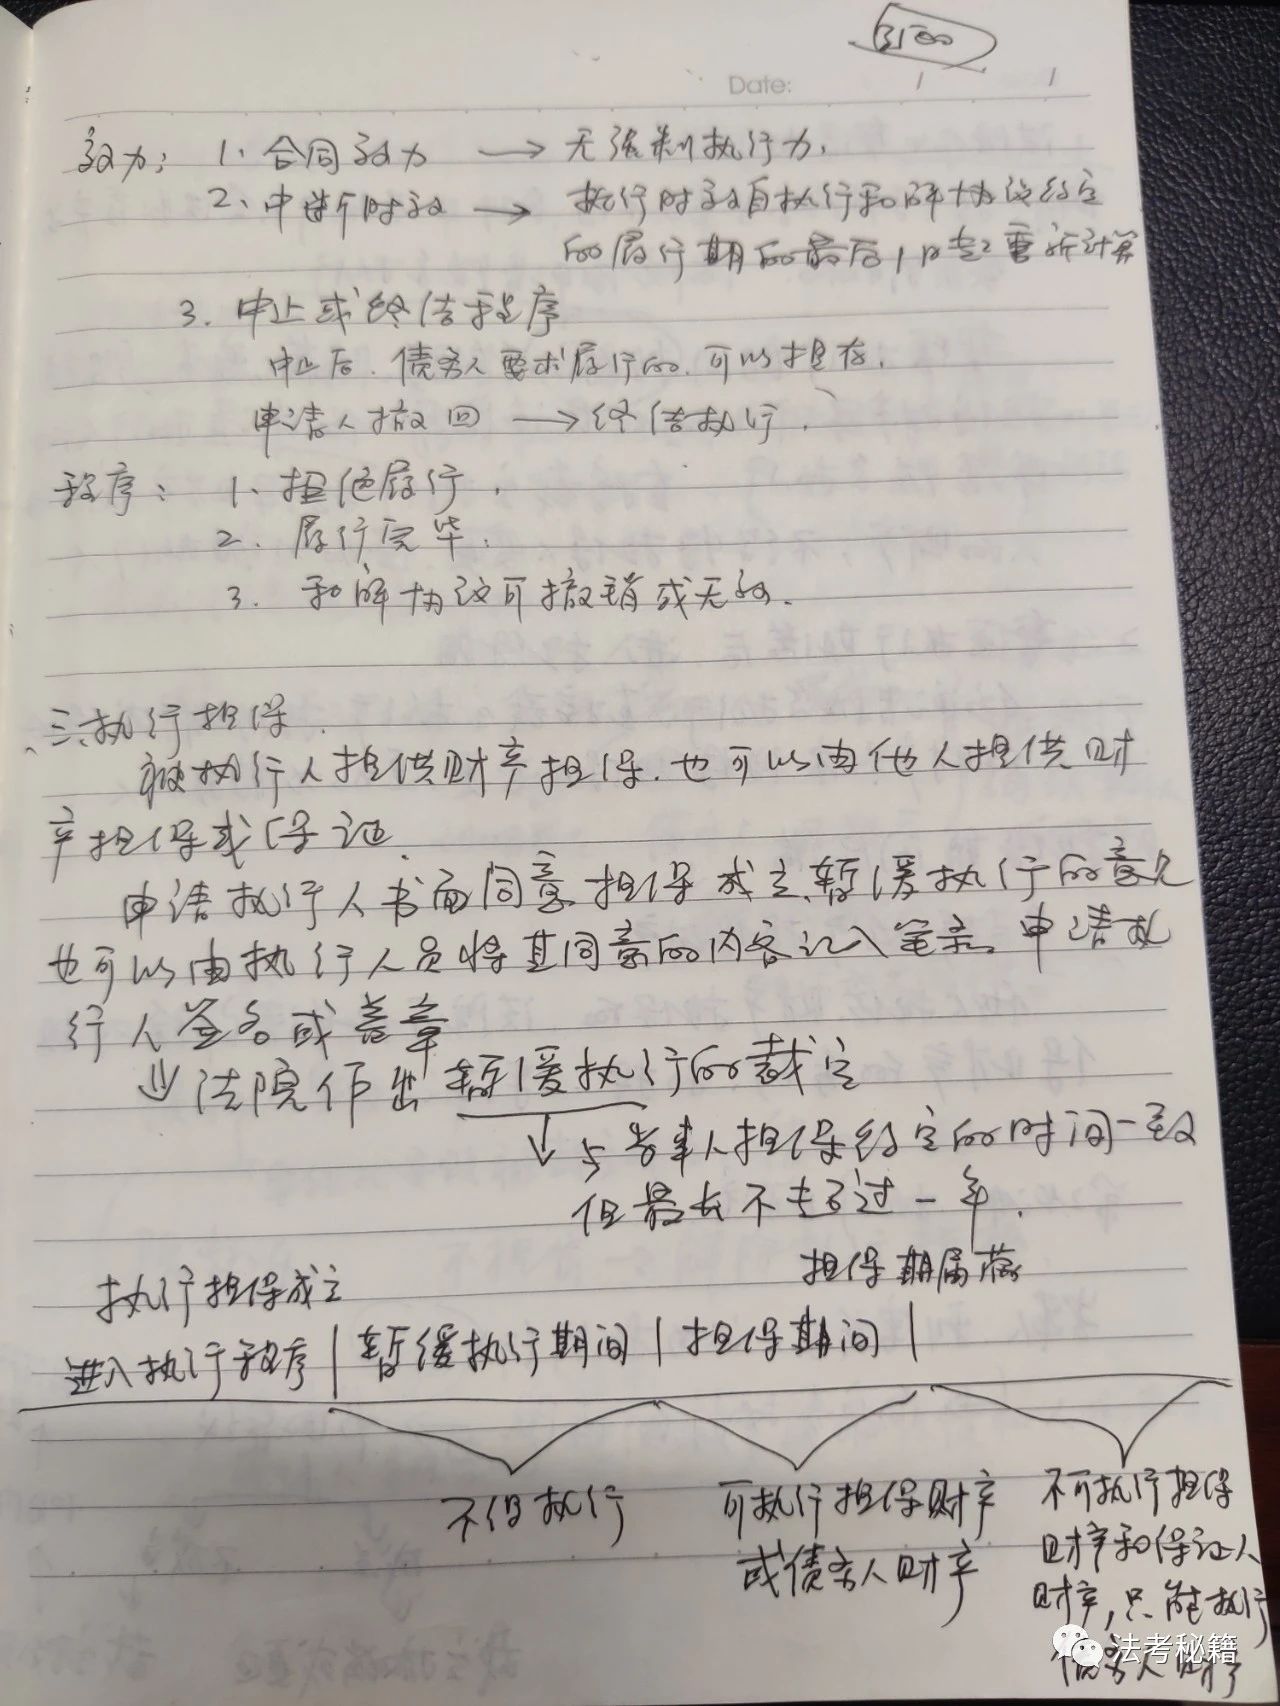 Date: / /
效力: 1. 合同效力 → 无强制执行力.
2. 中断时效 → 执行时效自执行和解协议约定
的履行期的最后1日起重新计算
3. 中止或终结程序
中止后. 债务人要求履行的. 可以提存.
申请人撤回 → 终结执行.
程序: 1. 拒绝履行.
2. 履行完毕.
3. 和解协议可撤销或无效.
三、执行担保.
被执行人提供财产担保. 也可以由他人提供财
产担保或保证.
申请执行人书面同意. 担保成立. 暂缓执行的意见
也可以由执行人员将其同意的内容记入笔录. 申请执
行人签名或盖章
⇓ 法院作出暂缓执行的裁定
↓ 与当事人担保约定的时间一致
但最长不超过一年.
担保期届满
执行担保成立
进入执行程序 | 暂缓执行期间 | 担保期间 |
不得执行
可执行担保财产
或债务人财产
不可执行担保
财产和保证人
财产, 只能执行
债务人财产
法考秘籍